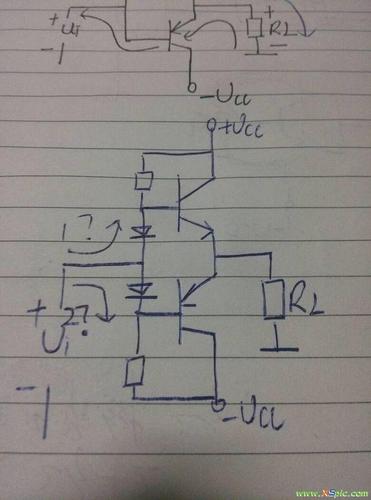 + Ui -
+ RL -
-UCC
+UCC
1?
+ 2?
Ui
RL
-
-UCC
www.XSpic.com